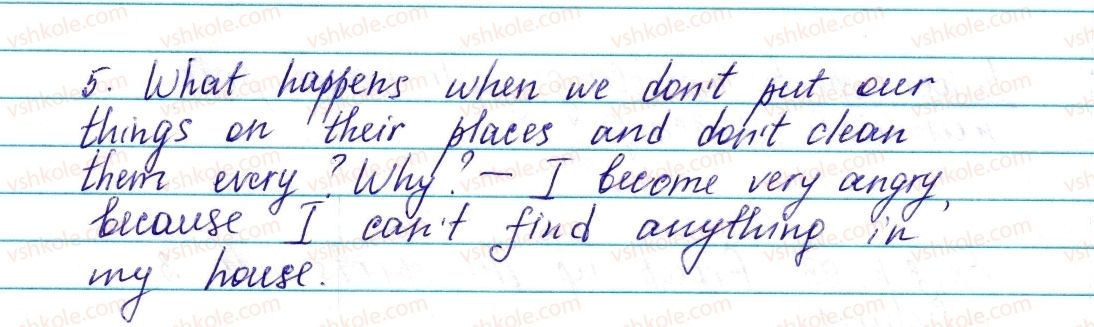 5. What happens when we don't put our
things on their places and don't clean
them every? Why? – I become very angry,
because I can't find anything in
my house.